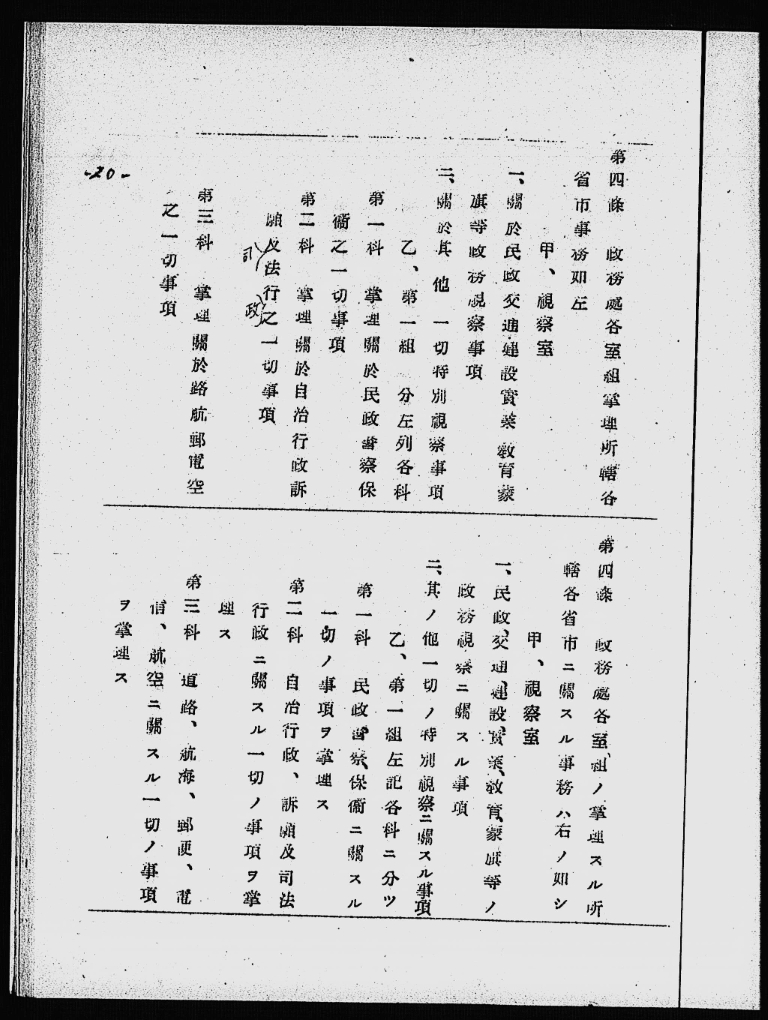 第四條　政務處各室組掌理所轄各
省市事務如左
甲、視察室
一、關於民政交通建設實業教育蒙
旗等政務視察事項
二、關於其他一切特別視察事項
乙、第一組　分左列各科
第一科　掌理關於民政警察保
衞之一切事項
第二科　掌理關於自治行政訴
願及法行之一切事項
司
政
第三科　掌理關於路航郵電空
之一切事項
-20-
第四條　政務處各室、組ノ掌理スル所
轄各省市ニ關スル事務ハ右ノ如シ
甲、視察室
一、民政、交通、建設、實業、教育、蒙旗等ノ
政務視察ニ關スル事項
二、其ノ他一切ノ特別視察ニ關スル事項
乙、第一組左記各科ニ分ツ
第一科　民政、警察、保衞ニ關スル
一切ノ事項ヲ掌理ス
第二科　自治行政、訴願及司法
行政ニ關スル一切ノ事項ヲ掌
理ス
第三科　道路、航海、郵便、電
信、航空ニ關スル一切ノ事項
ヲ掌理ス